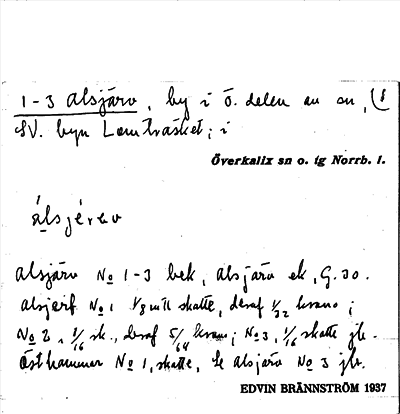 1-3 Alsjärv, by i Ö. delen av sn,
SV. byn Lomträsket; i
Överkalix sn o. tg Norrb. l.
álsjérav
Alsjärv No 1-3 bek, Alsjärv ek, G. 30.
Alsjerf No 1 1/8 mtl skatte, deraf 1/32 krono;
No 2, 1/16 sk., deraf 5/64 krono; No 3, 1/16 skatte jb.
Östhammar No 1, skatte, Se Alsjärv No 3 jb.
EDVIN BRÄNNSTRÖM 1937